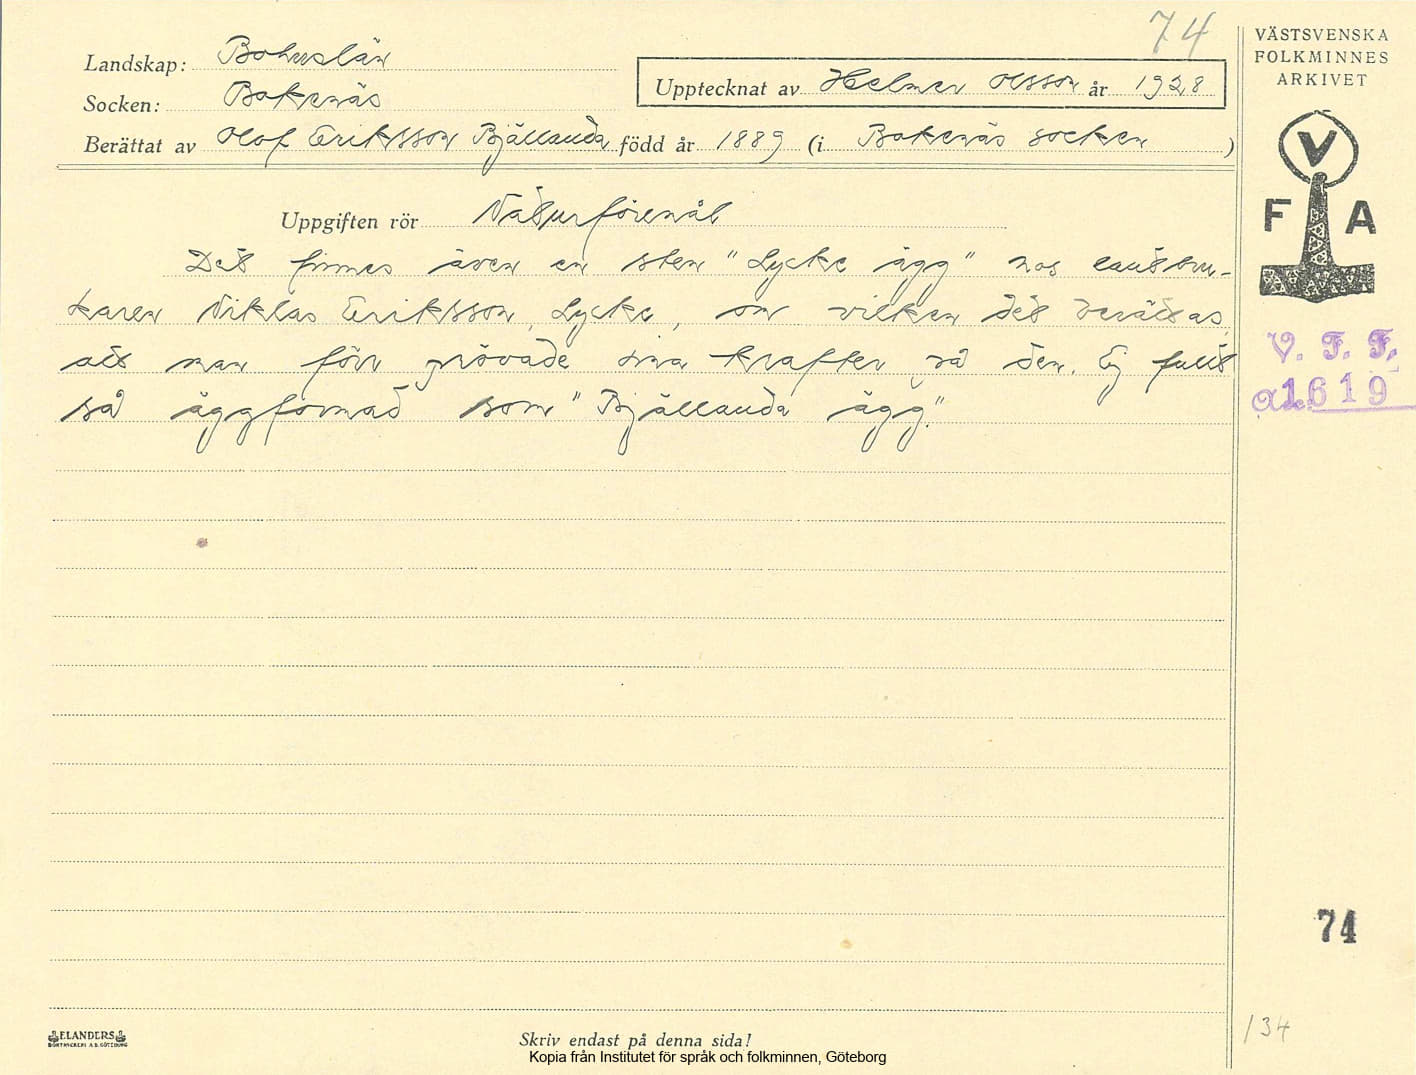 74
Landskap: Bohuslän
Socken: Bokenäs
Upptecknat av Helmer Olsson år 1928
Berättat av Olof Eriksson Bjällanda född år 1889 (i Bokenäs socken )
Uppgiften rör Naturföremål
Det finnes även en sten "Lycke ägg" hos lantbru-
karen Niklas Eriksson, Lycke, om vilken det berättas,
att man förr prövade sina krafter på den. Ej fullt
så äggformad som "Bjällanda ägg."
VÄSTSVENSKA
FOLKMINNES
ARKIVET
V
F A
V. F. F.
1619
74
134
ELANDERS
BOKTRYCKERI A.B. GÖTEBORG
Skriv endast på denna sida!
Kopia från Institutet för språk och folkminnen, Göteborg